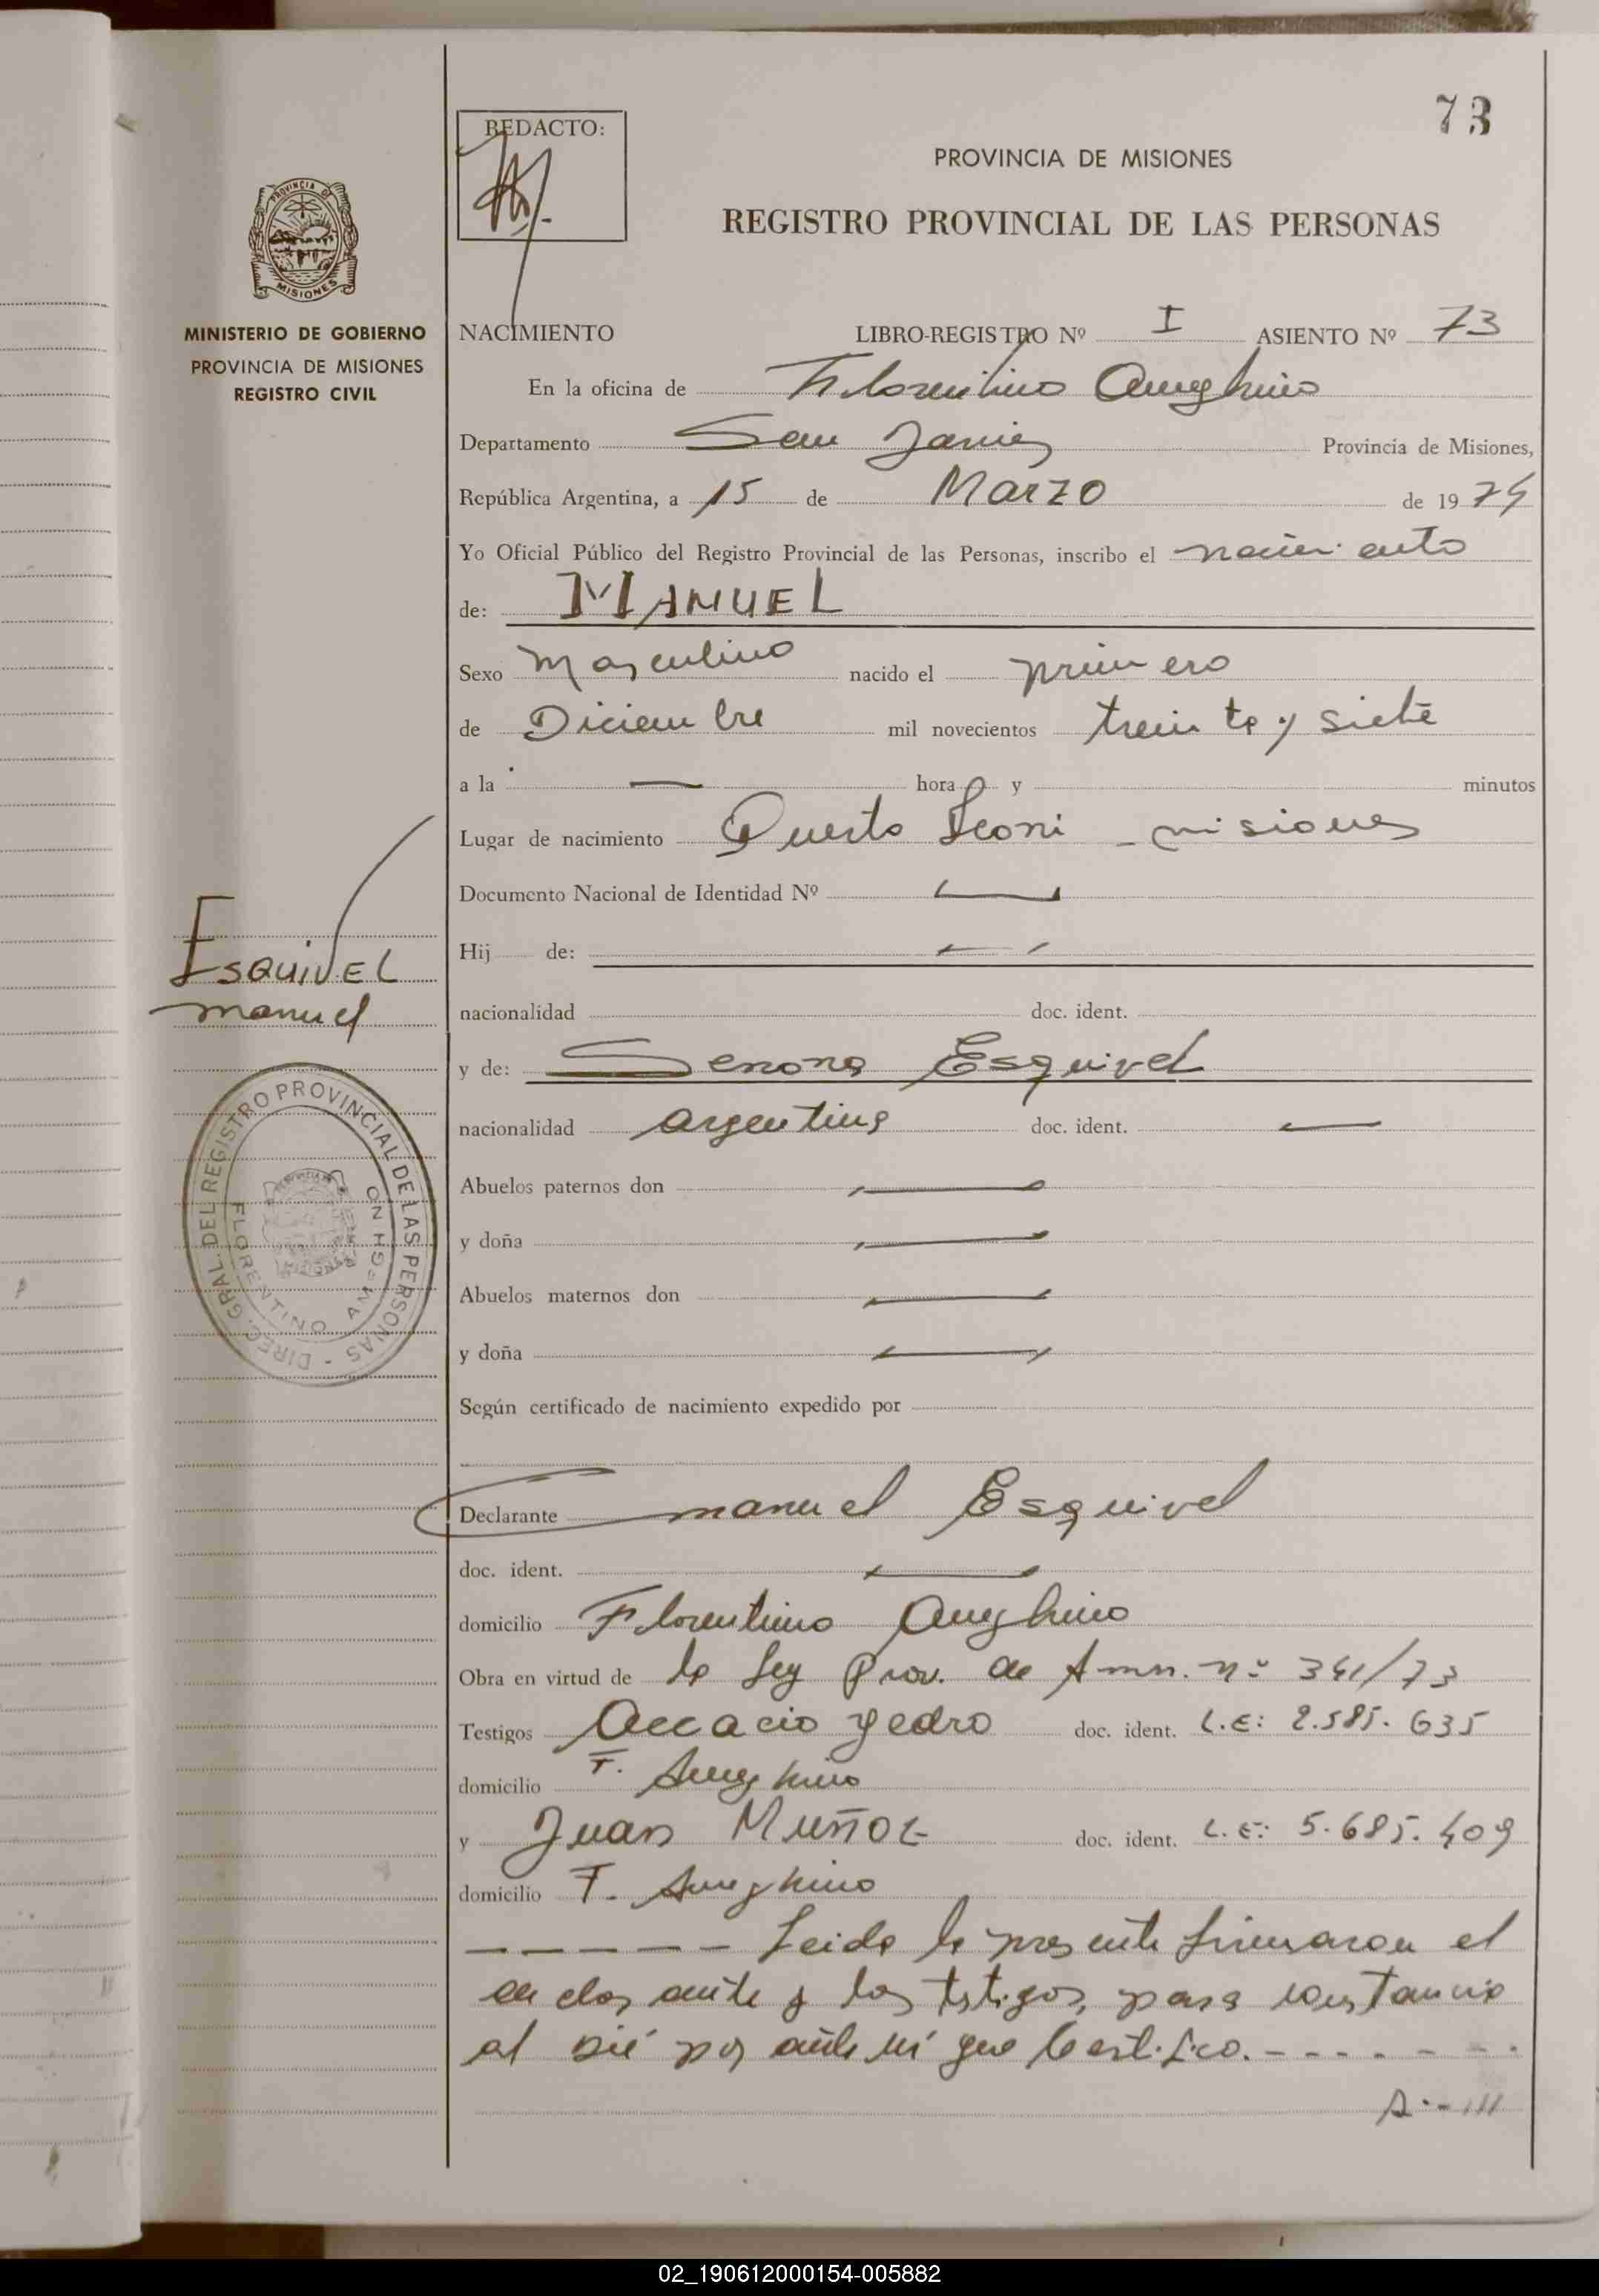 73
REDACTO:
PROVINCIA DE MISIONES
REGISTRO PROVINCIAL DE LAS PERSONAS
PROVINCIA DE
MISIONES
MINISTERIO DE GOBIERNO
PROVINCIA DE MISIONES
REGISTRO CIVIL
NACIMIENTO LIBRO-REGISTRO Nº I ASIENTO Nº 73
En la oficina de Florentino Ameghino
Departamento San Javier Provincia de Misiones,
República Argentina, a 15 de Marzo de 1974
Yo Oficial Público del Registro Provincial de las Personas, inscribo el nacimiento
de: MANUEL
Sexo Masculino nacido el primero
de Diciembre mil novecientos treinta y siete
a la — hora y minutos
Lugar de nacimiento Puerto Leoni - misiones
Documento Nacional de Identidad Nº —
Hij de: —
ESQUIVEL
manuel
nacionalidad doc. ident.
y de: Senona Esquivel
nacionalidad argentina doc. ident. —
Abuelos paternos don —
y doña —
Abuelos maternos don —
y doña —
DIREC. GRAL. DEL REGISTRO PROVINCIAL DE LAS PERSONAS -
FLORENTINO AMEGHINO
Según certificado de nacimiento expedido por
Declarante manuel Esquivel
doc. ident. —
domicilio Florentino Ameghino
Obra en virtud de la Ley Prov. de Amn. nº 341/73
Testigos Accacio Pedro doc. ident. L.E: 2.585.635
domicilio F. Ameghino
y Juan Muñoz doc. ident. L.E: 5.685.409
domicilio F. Ameghino
— — — — — — Leida la presente firmaron el
declarante y los testigos, para constancia
al pié por ante mí que Certifico. - - - - - - -
02_190612000154-005882